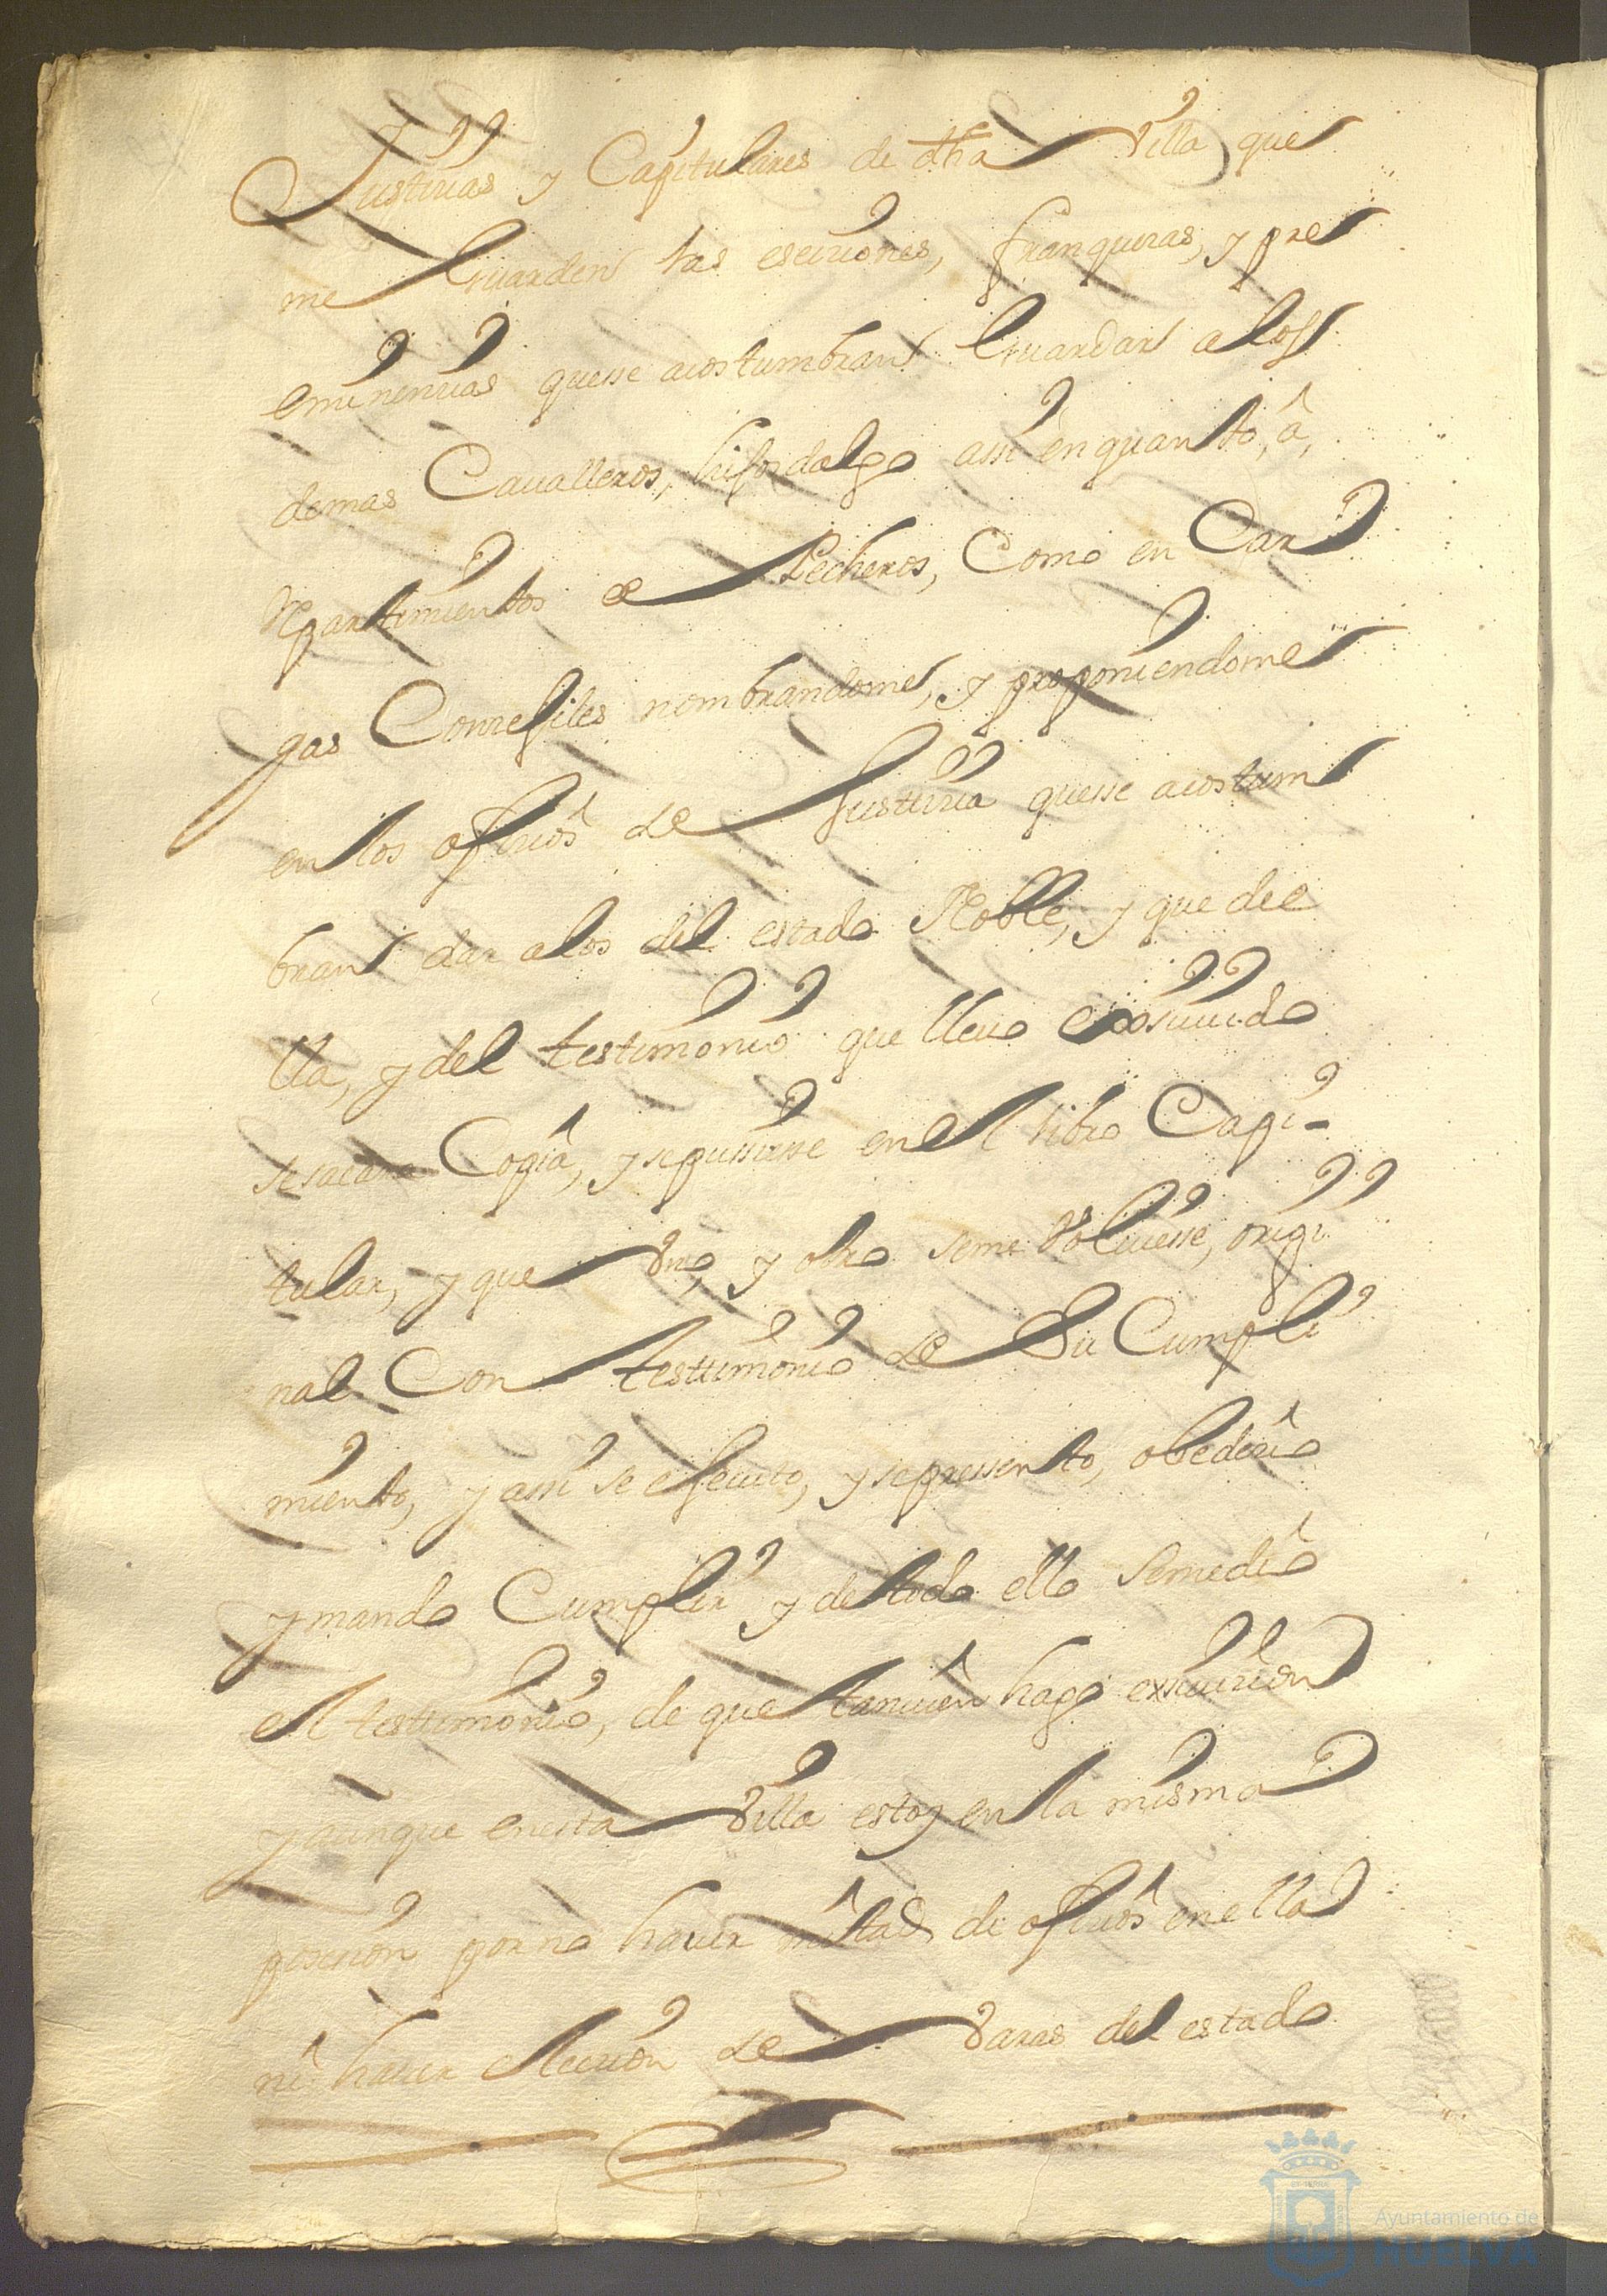 Justicias y Capitulares de dha Villa que
me Guarden las eseciones, franquicias, y pre
eminencias quesse acostumbran Guardar a los
demas Caualleros, hijosdalgo assi en quanto, â,
Repartimientos de Pecheros, Como en Car
gas Concejiles nombrandome, y proponiendome
en los ofiçios de Justicia quesse acostum
bran dar a los del estado Noble, y que de e
lla, y del testimonio que lleuo exsiuido
se sacara Copia, y se pussiesse en el libro Capi-
tular, y que Vno, y otro seme Voluiesse, origi
nal Con testimonio de Su Cumpli
miento, y assi se efecuto, y sepressento, obedeçio
y mando Cumplir y de todo ello semedio
el testimonio, de que tanuien hago exsiuicion
y aunque enesta Villa estoy en la misma
posecion por no hauer mitad de ofiçios enella
ni hauer eleccion de Varas del estado
Ayuntamiento de
HUELVA